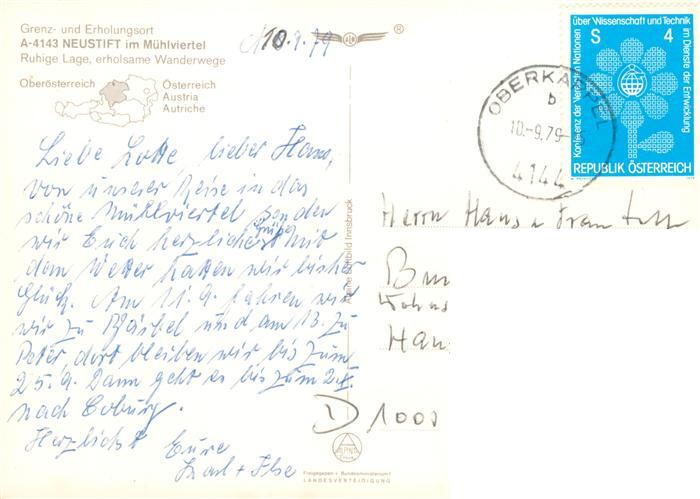 Grenz- und Erholungsort
A-4143 NEUSTIFT im Mühlviertel
Ruhige Lage, erholsame Wanderwege
Oberösterreich
Österreich
Austria
Autriche
10.9.79
®
Liebe Lotte, lieber Hans,
von unserer Reise in das
schöne Mühlviertel senden
wir Euch herzliche Grüße. Mit
dem Wetter hatten wir bisher
Glück. Am 11.9. fahren wir
wir zu Bärbel und am 13. zu
Peter dort bleiben wir bis zum
25.9. Dann geht es bis zum
nach Coburg.
Herzlichst Eure
Karl + Ilse
Alpine Luftbild Innsbruck
Konferenz der Vereinten Nationen über Wissenschaft und Technik im Dienste der Entwicklung
S 4
REPUBLIK ÖSTERREICH
OBERKAPPEL
b
10.-9.79-
4144
Herrn Hans u Frau
Han
D 1000
Freigegeben v. Bundesministerium f.
LANDESVERTEIDIGUNG